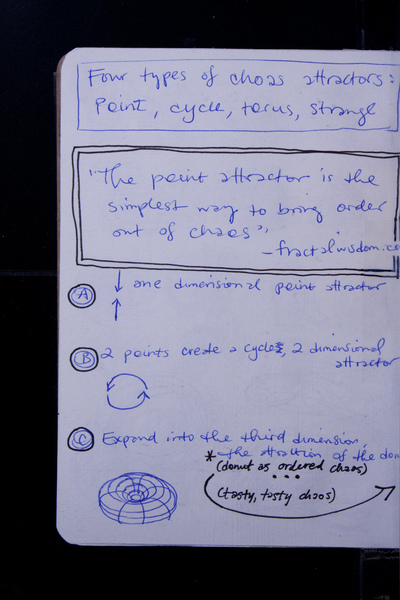 Four types of choas attractors:
Point, cycle, torus, strange
"The point attractor is the
simplest way to bring order
out of chaos",
- fractalwisdom.co
A one dimensional point attractor
B 2 points create a cycle, 2 dimensional
attractor
C Expand into the third dimension,
* the attraction of the don
(donut as ordered chaos)
...
(tasty, tasty chaos)